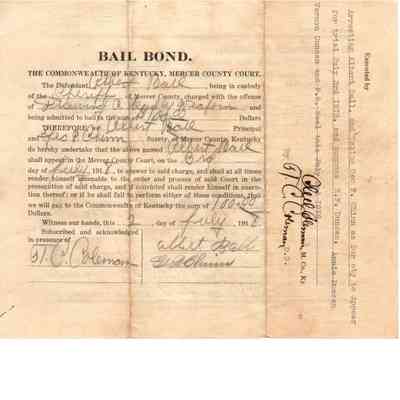 BAIL BOND.
THE COMMONWEALTH OF KENTUCKY, MERCER COUNTY COURT.
The Defendant Albert Ball, being in custody
of the Sheriff of Mercer County, charged with the offense
of Drawing a deadly Weapon and
being admitted to bail in the sum of $100.00 Dollars
THEREFORE, we Albert Ball Principal
and Geo P. Chinn Surety, of Mercer County, Kentucky
do hereby undertake that the above named Albert Ball
shall appear in the Mercer County Court, on the 3rd
day of July 191 8, to answer to said charge, and shall at all times
render himself amenable to the order and process of said Court in the
prosecution of said charge, and if convicted shall render himself in execution
thereof; or if he shall fail to perform either of these conditions, that
we will pay to the Commonwealth of Kentucky the sum of 100.00
Dollars.
Witness our hands, this 2 day of July 191 8
Subscribed and acknowledged
in presence of
W. C. Coleman
albert Ball
Geo Chinn
Executed by
Arresting Albert Ball, and P. Chinn as Sur ety to appear
for trial July 3rd 1918, and
Vernon Duncan and
Coleman, M. Co. Ky
W C Coleman, D.S.